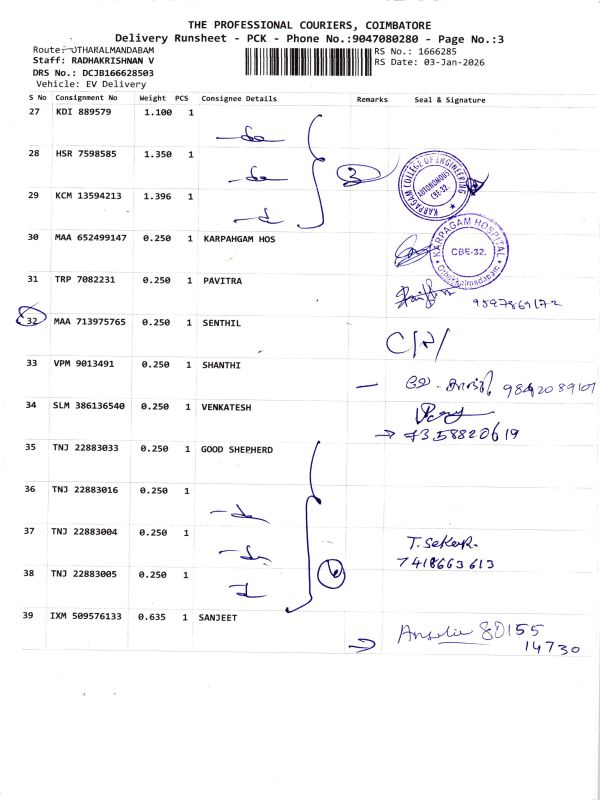 THE PROFESSIONAL COURIERS, COIMBATORE
Delivery Runsheet - PCK - Phone No.:9047080280 - Page No.:3
Route: OTHAKALMANDABAM
Staff: RADHAKRISHNAN V
DRS No.: DCJB166628503
Vehicle: EV Delivery
RS No.: 1666285
RS Date: 03-Jan-2026
S No Consignment No Weight PCS Consignee Details Remarks Seal & Signature
27 KDI 889579 1.100 1
28 HSR 7598585 1.350 1
3
KARPAGAM COLLEGE OF ENGINEERING
AUTONOMOUS
CBE-32.
29 KCM 13594213 1.396 1
30 MAA 652499147 0.250 1 KARPAHGAM HOS
KARPAGAM HOSPITAL
CBE-32.
Othakkalmadapam
31 TRP 7082231 0.250 1 PAVITRA
9597869172
32 MAA 713975765 0.250 1 SENTHIL
C/R/
33 VPM 9013491 0.250 1 SHANTHI
34 SLM 386136540 0.250 1 VENKATESH
7358820619
35 TNJ 22883033 0.250 1 GOOD SHEPHERD
36 TNJ 22883016 0.250 1
37 TNJ 22883004 0.250 1
T. Sekar.
7418663613
38 TNJ 22883005 0.250 1
39 IXM 509576133 0.635 1 SANJEET
80155
14730